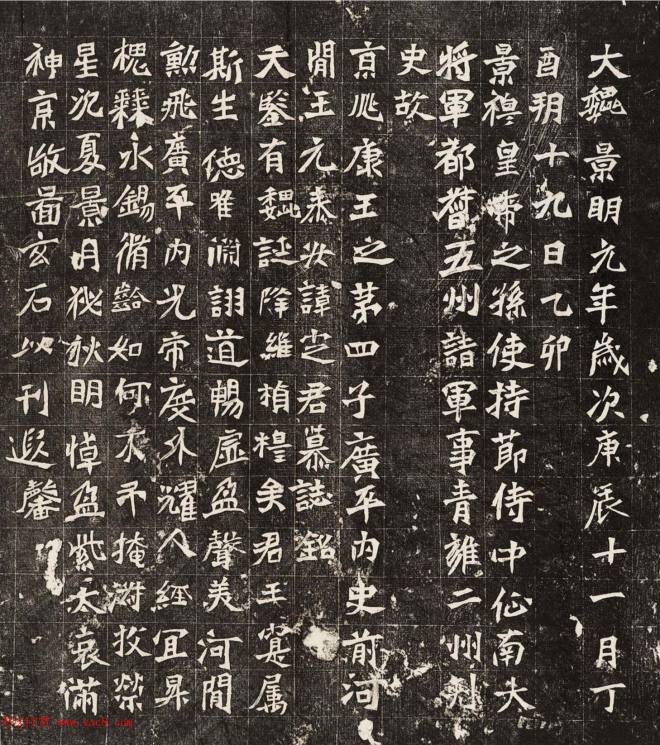 大魏景明元年歲次庚辰十一月丁
酉朔十九日乙卯
景穆皇帝之孫使持節侍中征南大
將軍都督五州諸軍事青雍二州刺
史故
京兆康王之第四子廣平內史前河
間王元泰安諱定君墓誌銘
天鑒有魏誕降維楨穆矣君王寔屬
斯生德唯淵詡道暢虛盈聲美河間
勳飛廣平內光帝度外耀人經宜昇
槐永錫脩齡如何不弔掩牧榮
星沉夏景月祕秋明悼盈紫太哀滿
神京敬啚玄石以刊遐馨
www.yac8.com